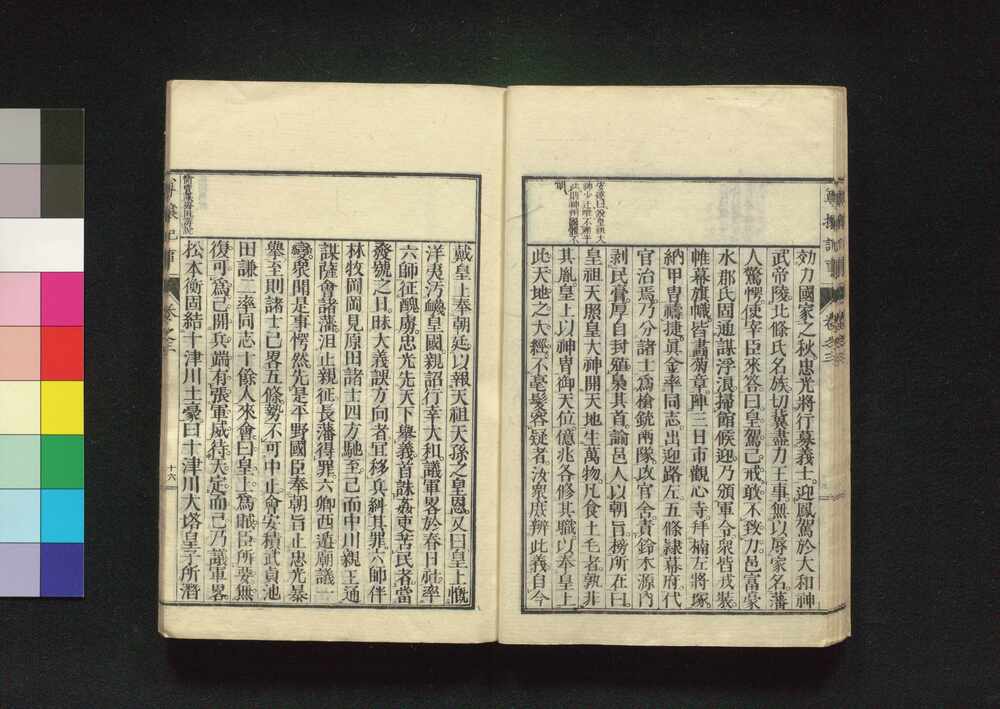 効力國家之秋忠光將行募義士迎鳳駕於大和神
武帝陵北條氏名族切冀盡力王事無以辱家名藩
人驚愕使宰臣來答曰皇駕己戒敢不致力邑富豪
水郡氏固通謀浮浪掃館候迎乃頒軍令衆皆戎裝
帷幕旗幟皆畫菊章陣三日市觀心寺拜楠左將塚
納甲冑禱捷眞金率同志出迎路左五條隷幕府代
官治焉乃分諸士爲槍銃兩隊攻官舍責鈴木源內
剥民膏厚自封殖梟其首論邑人以朝旨榜所在曰
皇祖天照皇大神開天地生萬物凡食土毛者孰非
其胤皇上以神冑御天位億兆各修其職以奉皇上
此天地之大經不毫髮容疑者汝衆庶辨此義自今
戴皇上奉朝廷以報天祖天孫之皇恩又曰皇上慨
洋夷汚衊皇國親詔行幸大和議軍畧於春日社率
六師征醜虜忠光先天下擧義首誅姦吏苦民者當
發號之日昧大義誤方向者宜移兵糾其罪六師伴
林牧岡岡見原田諸士四方馳至己而中川親王通
謀薩會諸藩沮止親征長藩得罪六卿西遁廟議一
變衆聞是事愕然先是平野國臣奉朝旨止忠光暴
擧至則諸士己畧五條勢不可中止會安積武貞池
田謙二率同志十餘人來會曰皇上爲賊臣所要無
復可爲己開兵端有張軍威待天定而己乃議軍畧
松本衡固結十津川土豪曰十津川大塔皇子所潛
卷之三
十六